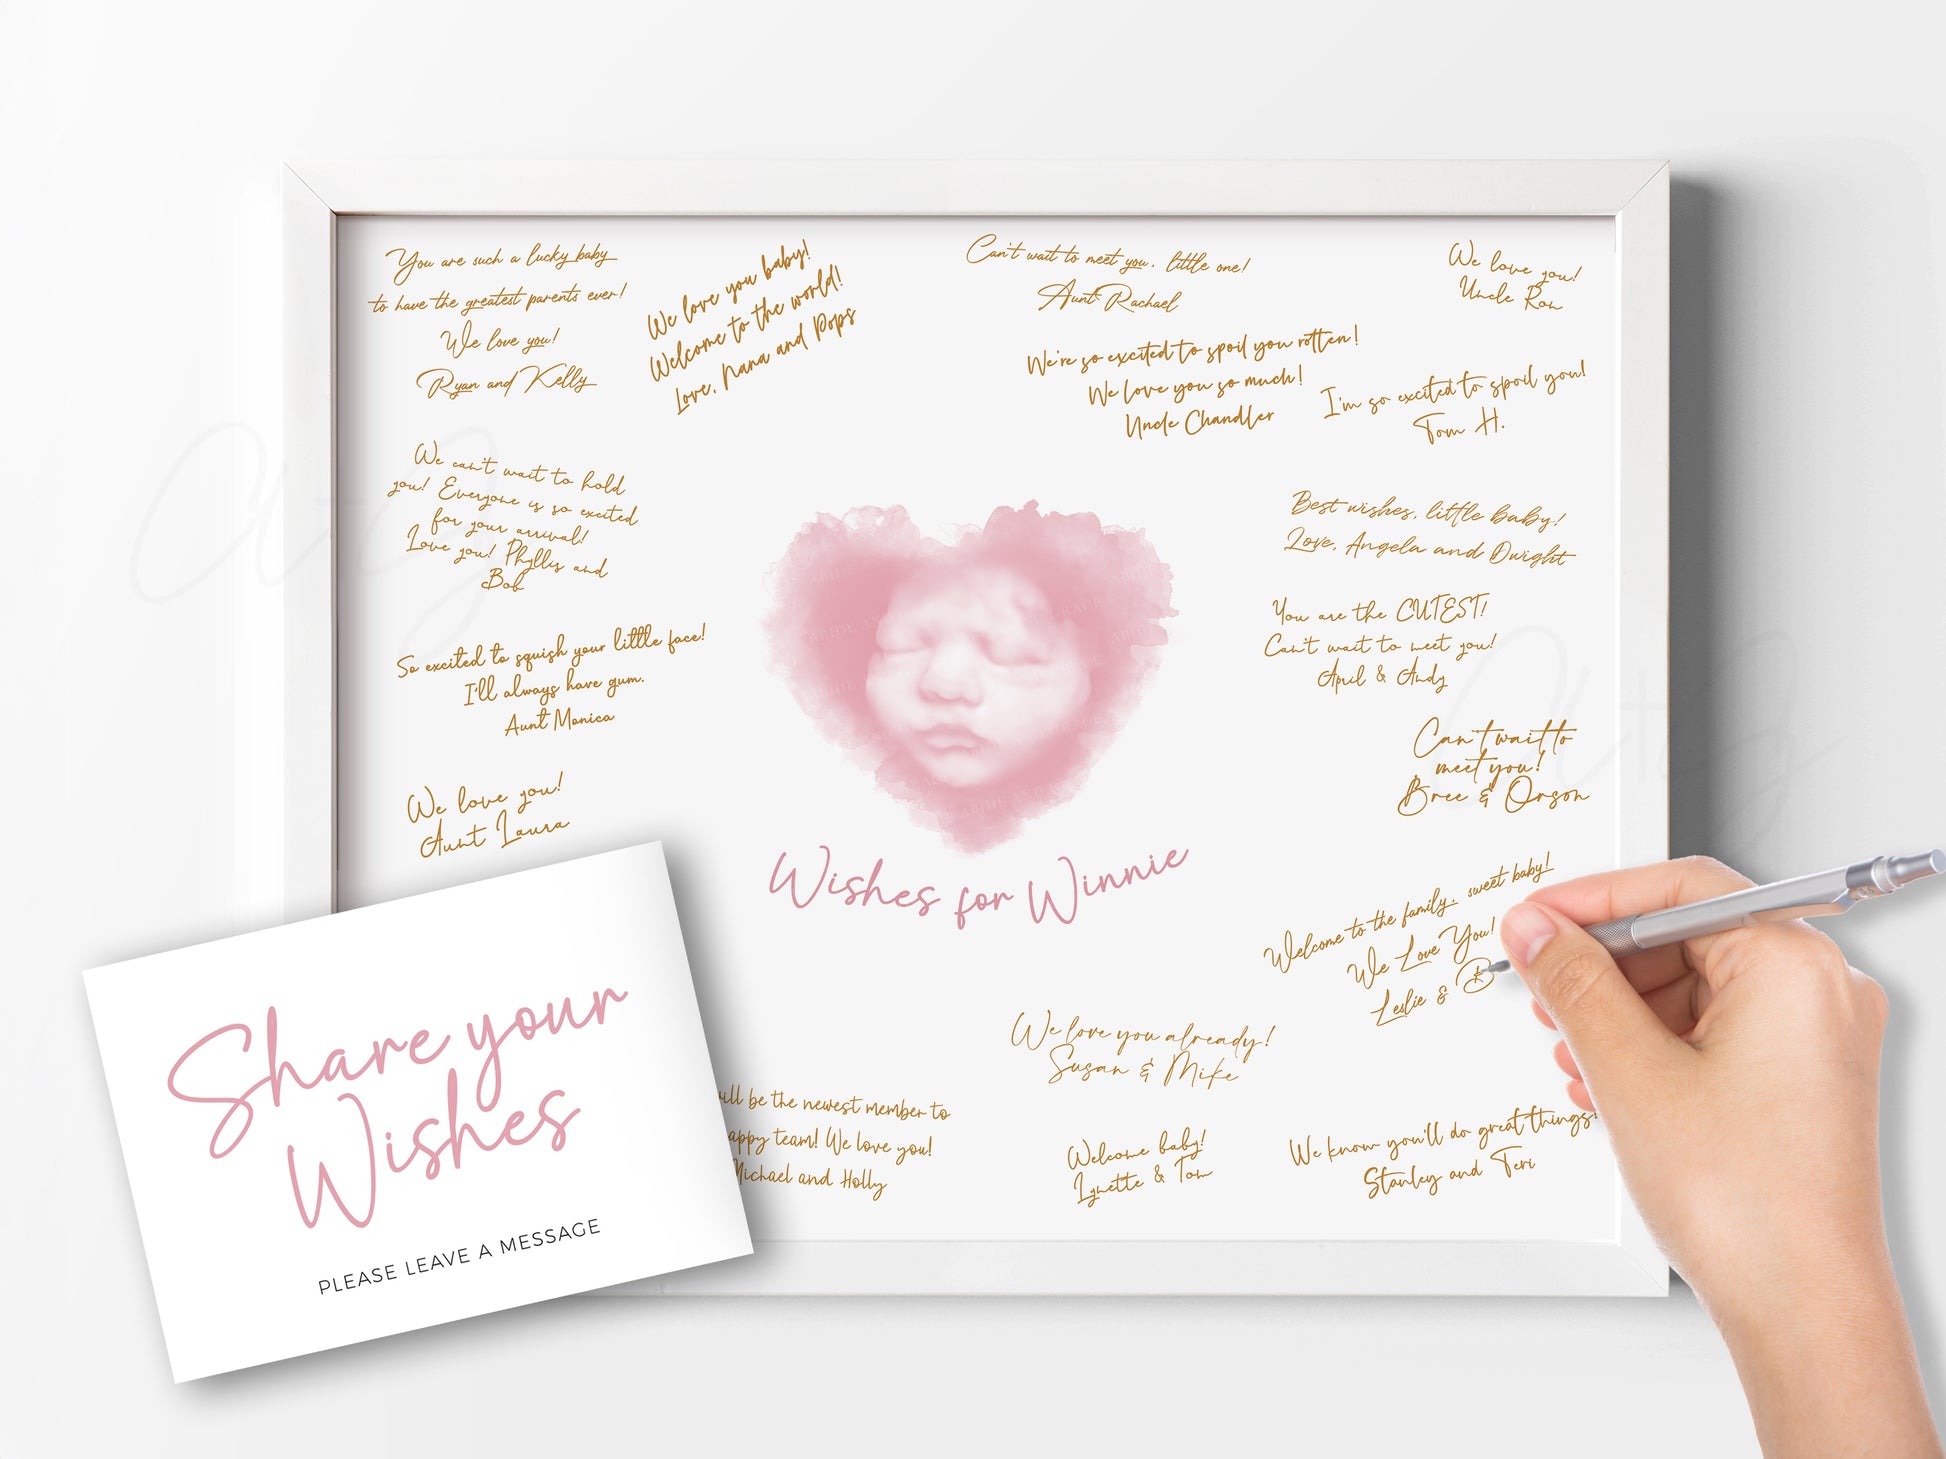 You are such a lucky baby
to have the greatest parents ever!
We love you!
Ryan and Kelly
We love you baby!
Welcome to the world!
Love, Nana and Pops
Can't wait to meet you, little one!
Aunt Rachael
We love you!
Uncle Ron
We're so excited to spoil you rotten!
We love you so much!
Uncle Chandler
I'm so excited to spoil you!
Tom H.
We can't wait to hold
you! Everyone is so excited
for your arrival!
Love you! Phyllis and
Bob
Best wishes, little baby!
Love, Angela and Dwight
You are the CUTEST!
Can't wait to meet you!
April & Andy
So excited to squish your little face!
I'll always have gum.
Aunt Monica
Can't wait to
meet you!
Bree & Orson
We love you!
Aunt Laura
Wishes for Winnie
Welcome to the family, sweet baby!
We Love You!
Leslie & B
Share your
Wishes
PLEASE LEAVE A MESSAGE
We love you already!
Susan & Mike
will be the newest member to
appy team! We love you!
Michael and Holly
Welcome baby!
Lynette & Tom
We know you'll do great things!
Stanley and Teri
ABIDE AND CRACK